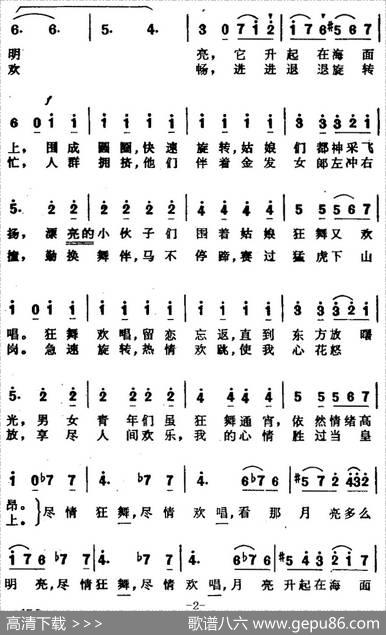 6. 6. 5. 4. 3 0 7 1 2 1 7 6 #5 6 7
明 亮，它升起在海面
欢 畅，进进退退旋转
f
6 0 1 1 1 1 1 1 1 1 1 1 1 1 1
上，围成圈圈，快速旋转，姑娘们都神采飞
忙，人群拥挤，他们伴着金发女郎左冲右
5. 2 2 2 2 2 2 4 4 4 4 5 5 5 6 7
扬，漂亮的小伙子们围着姑娘狂舞又欢
撞，勤换舞伴，马不停蹄，赛过猛虎下山
1 0 1 1 1 1 1 1 1 1 3 3 3 3 4
唱。狂舞欢唱，留恋忘返，直到东方放曙
岗。急速旋转，热情欢跳，使我心花怒
5. 2 2 2 2 2 2 4 4 4 4 5 5 5 6 7
光，男女青年们虽狂舞通宵，依然情绪高
放，享尽人间欢乐，我的心情胜过当皇
1 0 b7 7 4. b7 7 4. 6 b7 6 #5 7 2 4 3 2
昂。
上。
尽情狂舞，尽情欢唱，看那月亮多么
1 7 6 b7 7 4. b7 7 4. 6 b7 6 #5 5 6 7
明亮，尽情狂舞，尽情欢唱，月亮升起在海面
-2-
高清下载 >>>
歌谱八六 www.gepu86.com